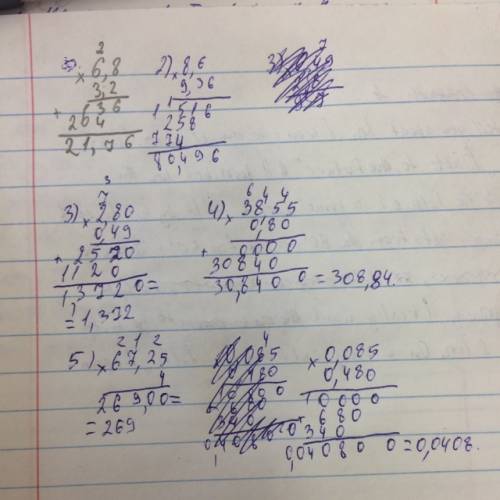 2
1) × 6,8
3,2
+ 136
204
21,76
2) × 8,6
9,36
1 1 516
258
774
80,496
3
3) × 2,80
0,49
+ 2520
1120
1,3720 =
1
= 1,372
6 4 4
4) × 3855
0,80
+ 0000
30840
30,840 0 = 308,84.
2 1 2
5) × 67,25
4
269,00 =
= 269
× 0,085
0,480
10000
680
340
0,04080 0 = 0,0408.